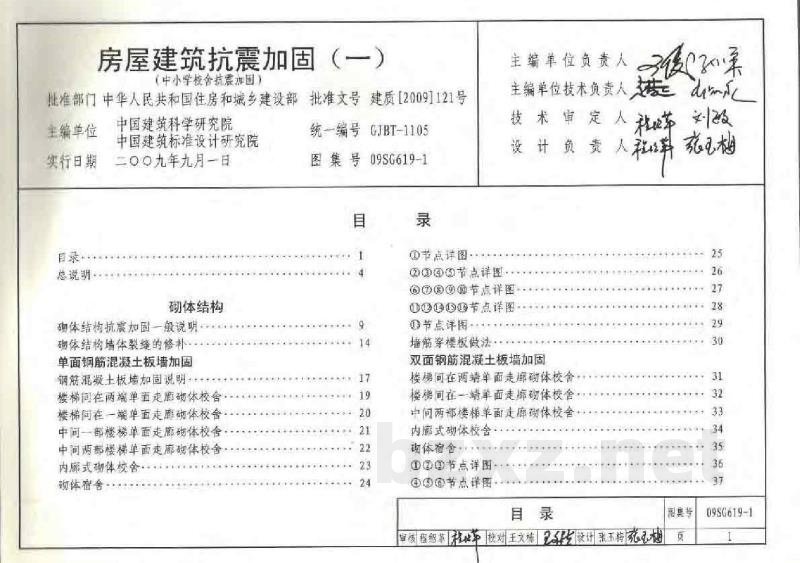 房屋建筑抗震加固（一）
（中小学校舍抗震加固）
批准部门 中华人民共和国住房和城乡建设部 批准文号 建质[2009]121号
主编单位 中国建筑科学研究院
中国建筑标准设计研究院
统一编号 GJBT-1105
实行日期 二〇〇九年九月一日 图集号 09SG619-1
主编单位负责人
主编单位技术负责人
技术审定人 刘敏
设计负责人 张玉梅
目 录
目录 1
总说明 4
砌体结构
砌体结构抗震加固一般说明 9
砌体结构墙体裂缝的修补 14
单面钢筋混凝土板墙加固
钢筋混凝土板墙加固说明 17
楼梯间在两端单面走廊砌体校舍 19
楼梯间在一端单面走廊砌体校舍 20
中间一部楼梯单面走廊砌体校舍 21
中间两部楼梯单面走廊砌体校舍 22
内廊式砌体校舍 23
砌体宿舍 24
①节点详图 25
②③④⑤节点详图 26
⑥⑦⑧⑨⑩节点详图 27
节点详图 28
节点详图 29
墙筋穿楼板做法 30
双面钢筋混凝土板墙加固
楼梯间在两端单面走廊砌体校舍 31
楼梯间在一端单面走廊砌体校舍 32
中间两部楼梯单面走廊砌体校舍 33
内廊式砌体校舍 34
砌体宿舍 35
①②③节点详图 36
④⑤⑥节点详图 37
目 录 图集号 09SG619-1
审核 程绍革 校对 王文栋 设计 张玉梅 张玉梅 页 1